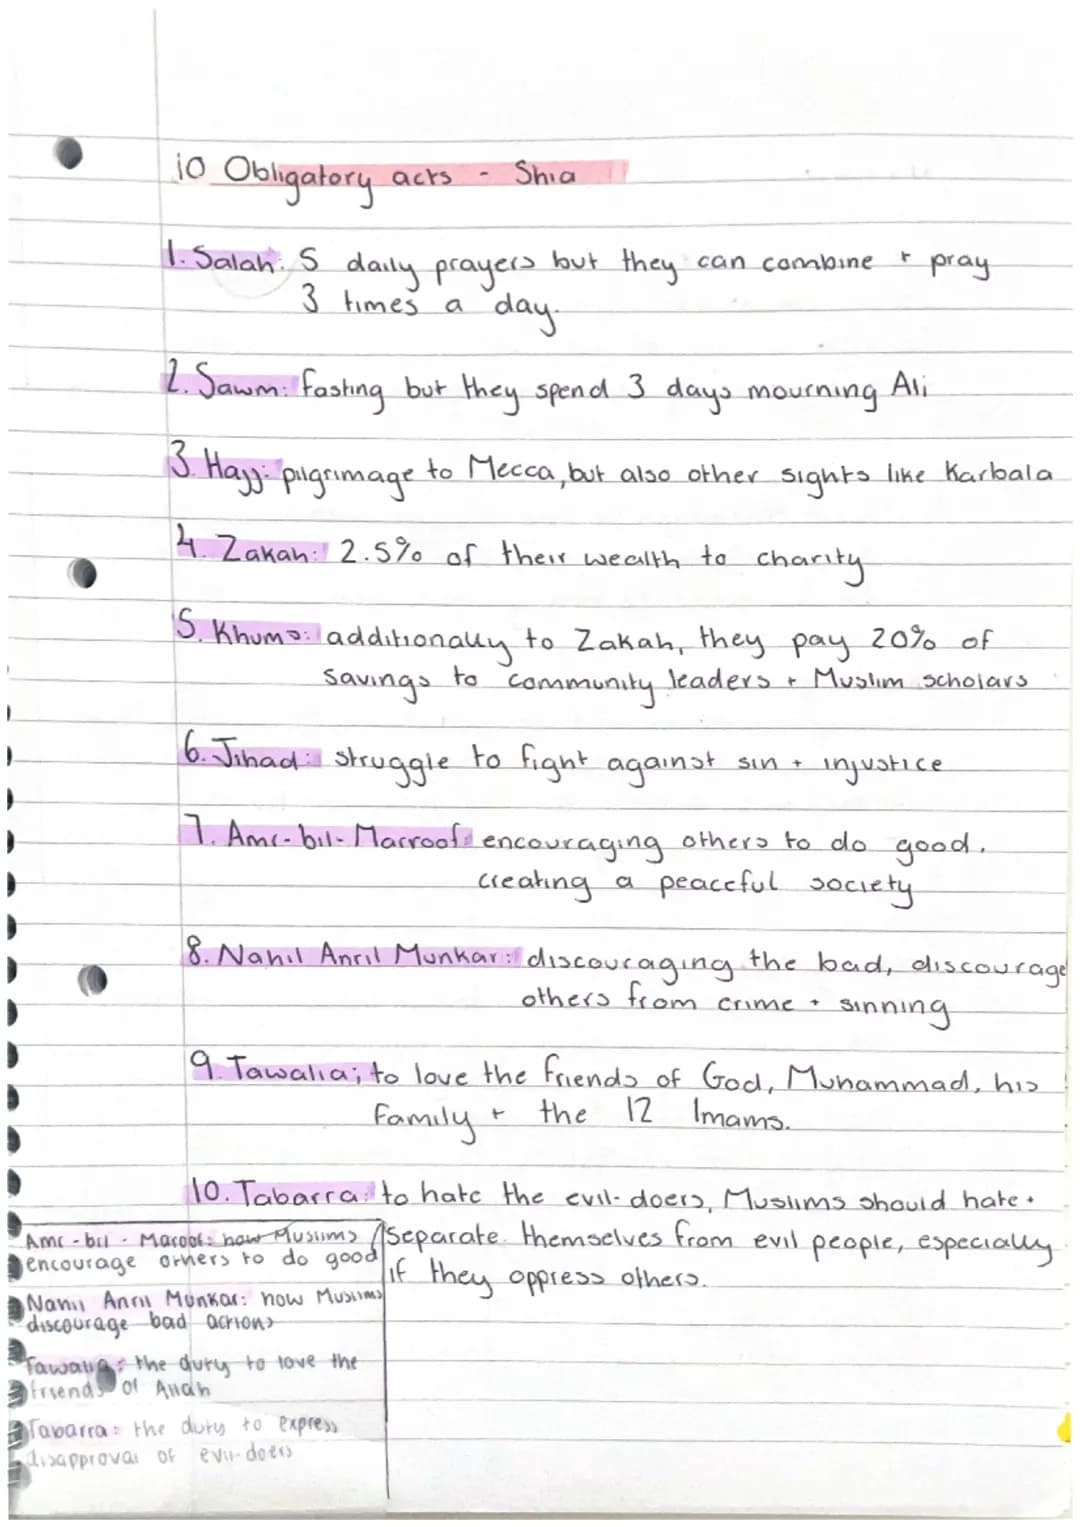 10 Obligatory acts - Shia
1. Salah: 5 daily prayers but they can combine + pray
3 times a day.
2. Sawm: fasting but they spend 3 days mourning Ali
3. Hajj: pilgrimage to Mecca, but also other sights like Karbala
4. Zakah: 2.5% of their wealth to charity
5. Khums: additionally to Zakah, they pay 20% of
savings to community leaders + Muslim scholars
6. Jihad: struggle to fight against sin + injustice
7. Amr-bil-Marroof: encouraging others to do good.
creating a peaceful society
8. Nahil Anril Munkar: discouraging the bad, discourage
others from crime + sinning
9. Tawalia; to love the friends of God, Muhammad, his
family + the 12 Imams.
10. Tabarra: to hate the evil-doers, Muslims should hate +
separate themselves from evil people, especially
if they oppress others.
Amr-bil-Maroof: how Muslims
encourage others to do good
Nahil Anril Munkar: how Muslims
discourage bad actions
Tawalia: the duty to love the
friends of Allah
Tabarra: the duty to express
disapproval of evil-doers